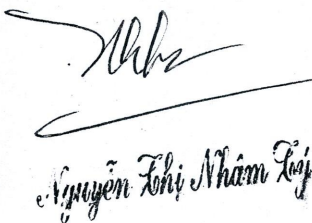 Nguyễn Thị Nhâm Lý